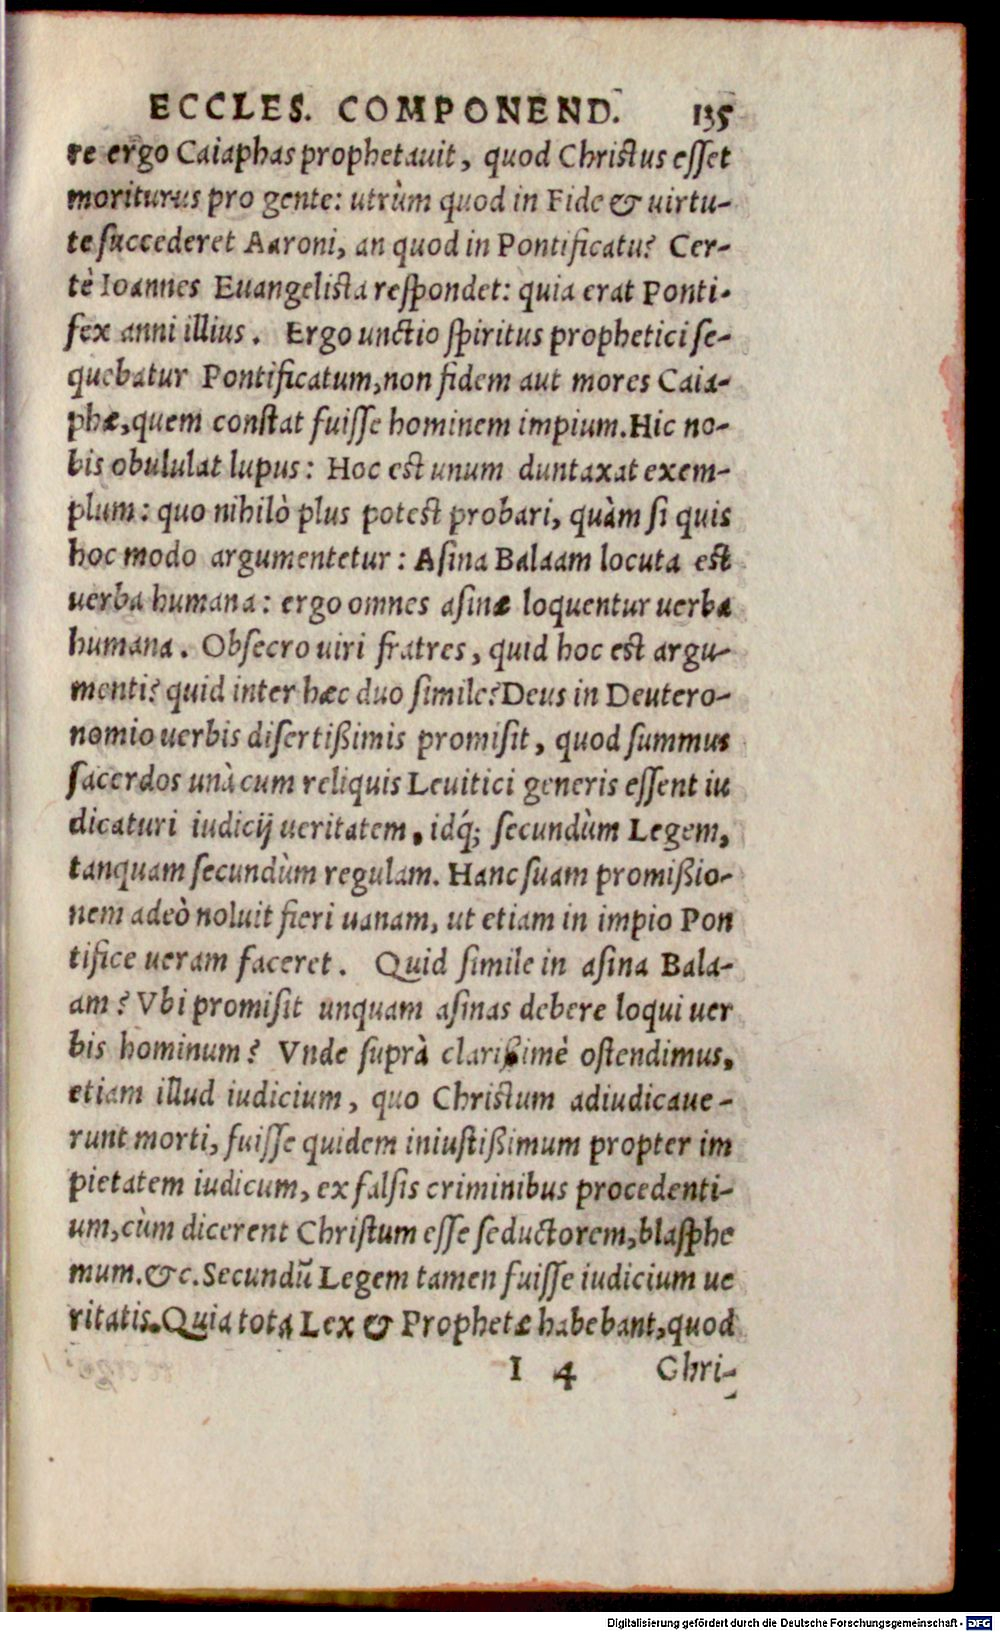 ECCLES. COMPONEND. 135
re ergo Caiaphas prophetauit, quod Christus esset
moriturus pro gente: utrùm quod in Fide & uirtu-
te succederet Aaroni, an quod in Pontificatu? Cer-
tè Ioannes Euangelista respondet: quia erat Ponti-
fex anni illius. Ergo unctio spiritus prophetici se-
quebatur Pontificatum, non fidem aut mores Caia-
phæ, quem constat fuisse hominem impium. Hic no-
bis obululat lupus: Hoc est unum duntaxat exem-
plum: quo nihilò plus potest probari, quàm si quis
hoc modo argumentetur: Asina Balaam locuta est
uerba humana: ergo omnes asinæ loquentur uerba
humana. Obsecro uiri fratres, quid hoc est argu-
menti? quid inter hæc duo simile? Deus in Deutero-
nomio uerbis disertißimis promisit, quod summus
sacerdos unà cum reliquis Leuitici generis essent iu
dicaturi iudicij ueritatem, idq́; secundùm Legem,
tanquam secundùm regulam. Hanc suam promißio-
nem adeò noluit fieri uanam, ut etiam in impio Pon
tifice ueram faceret. Quid simile in asina Bala-
am? Vbi promisit unquam asinas debere loqui uer
bis hominum? Vnde suprà clarißimè ostendimus,
etiam illud iudicium, quo Christum adiudicaue-
runt morti, fuisse quidem iniustißimum propter im
pietatem iudicum, ex falsis criminibus procedenti-
um, cùm dicerent Christum esse seductorem, blasphe
mum. &c. Secundũ Legem tamen fuisse iudicium ue
ritatis. Quia tota Lex & Prophetæ habebant, quod
I 4 Chri-
Digitalisierung gefördert durch die Deutsche Forschungsgemeinschaft - DFG